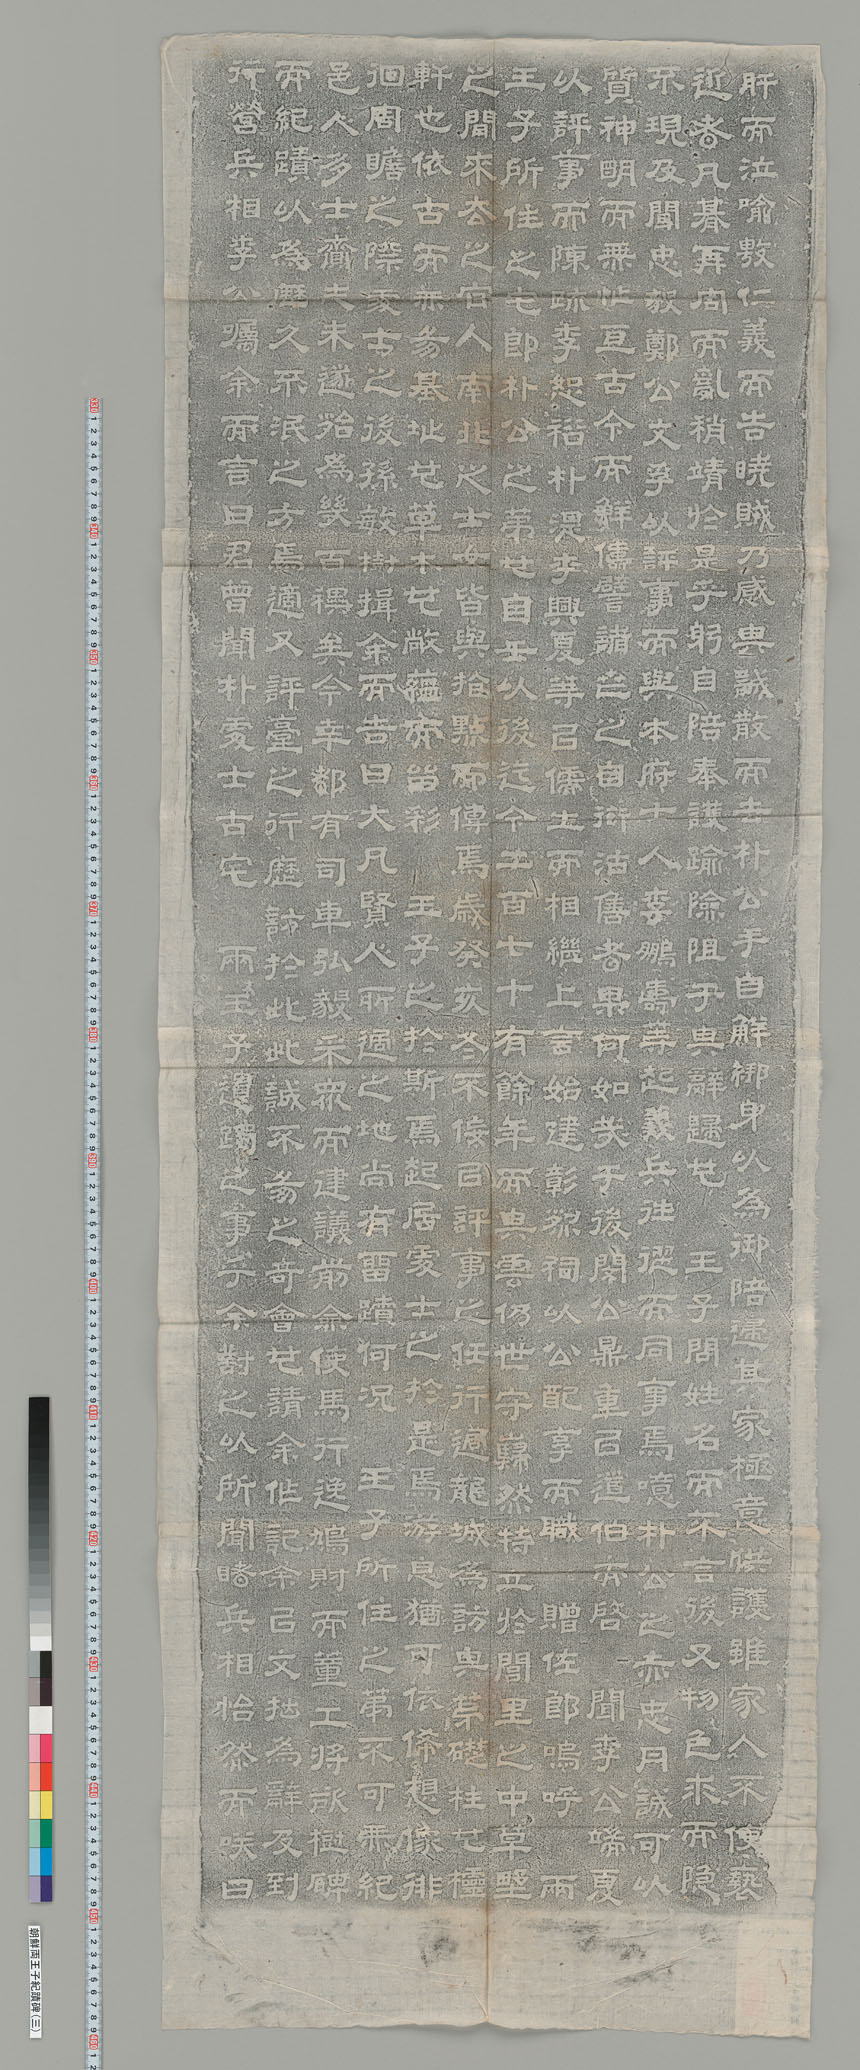 肝而泣喩敷仁義而告曉賊乃感其誠散而去朴公手自解綁身以為御陪還其家極意供護雖家人不使褻
近者凡朞再周而亂稍靖於是乎躬自陪奉護踰險阻于其辭歸也 王子問姓名而不言後又物色求而隐
不現及聞忠毅鄭公文孚以評事而與本府士人李鵬壽等起義兵往從而同事焉噫朴公之赤忠丹誠可以
質神明而無怍亘古今而鮮儔譬諸世之自衒沽售者果何如㢤于後閔公鼎重以道伯夲啓 聞李公端夏
以評事而陳疏李恕裕朴滉李興夏等以儒生而相繼上言始建彰烈祠以公配享而職 贈佐郎嗚呼 兩
王子所住之宅即朴公之第也自壬以後迄今二百七十有餘年而其雲仍世守巋然特立於閭里之中草壄
之間來去之官人南北之士女皆與指點而傳焉歲癸亥冬不佞以評事之任行過龍城為訪其蔡礎柱也櫺
軒也依古而無易基址也草木也敞蘊而留彩 王子之於斯焉起居處士之於是焉游息猶可依俙想像徘
徊周瞻之際處士之後孫 揖余而告曰大凡賢人所過之地尚有留蹟何况 王子所住之第不可無紀
邑人多士齎志未遂貽為幾百禩矣今幸都有司車弘毅采衆而建議前僉使馬行逸鳩財而董工将欲樹碑
而紀蹟以為歷久不泯之方焉適又評臺之行歴訪於此此誠不易之奇會也請余作記余以文拙為辭及到
行營兵相李公囑余而言曰君曾聞朴處士古宅 兩王子遺躅之事乎余對之以所聞睹兵相怡然而咲曰
朝鮮両王子紀蹟碑(三)